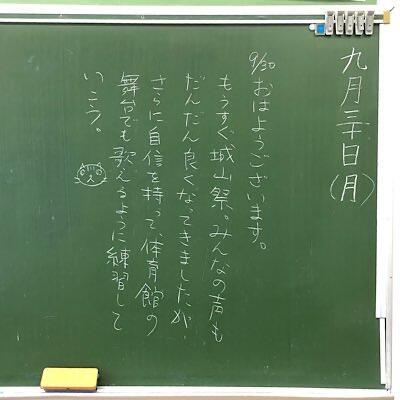 九月三十日(月)
9/30 おはようございます。
もうすぐ城山祭。みんなの声も
だんだん良くなってきましたが、
さらに自信を持って、体育館の
舞台でも歌えるように練習して
いこう。